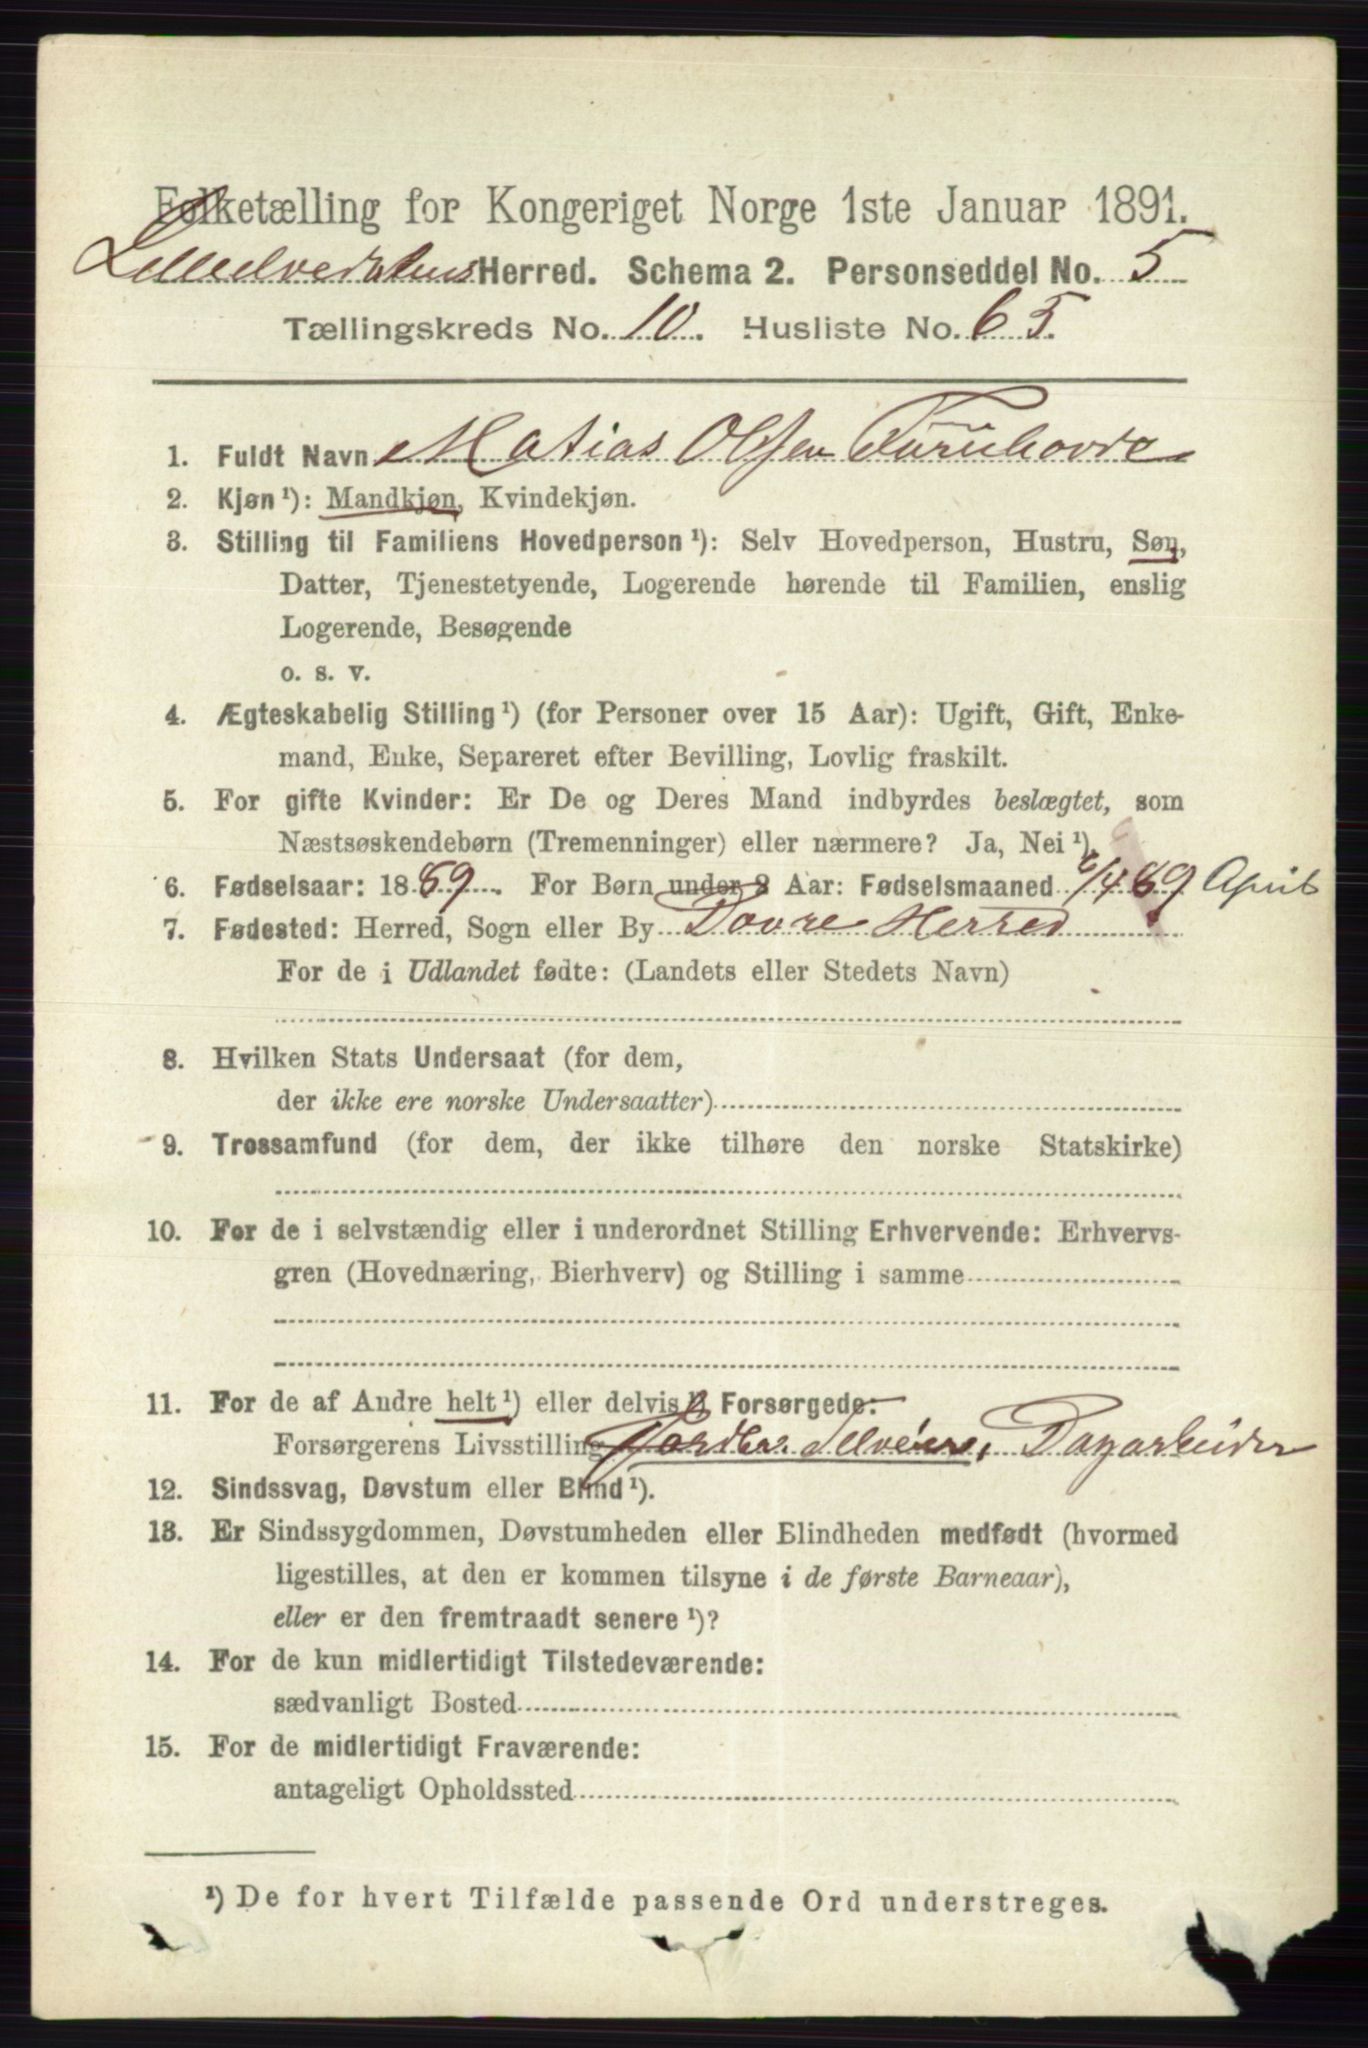 Folketælling for Kongeriget Norge 1ste Januar 1891.
Lilleelvedalens Herred. Schema 2. Personseddel No. 5
Tællingskreds No. 10. Husliste No. 65.
1. Fuldt Navn Matias Olsen Furuhovde
2. Kjøn ¹): Mandkjøn, Kvindekjøn.
3. Stilling til Familiens Hovedperson ¹): Selv Hovedperson, Hustru, Søn,
Datter, Tjenestetyende, Logerende hørende til Familien, enslig
Logerende, Besøgende
o. s. v.
4. Ægteskabelig Stilling ¹) (for Personer over 15 Aar): Ugift, Gift, Enke-
mand, Enke, Separeret efter Bevilling, Lovlig fraskilt.
5. For gifte Kvinder: Er De og Deres Mand indbyrdes beslægtet, som
Næstsøskendebørn (Tremenninger) eller nærmere? Ja, Nei ¹).
6. Fødselsaar: 1889. For Børn under 2 Aar: Fødselsmaaned 6/4 89 April
7. Fødested: Herred, Sogn eller By Dovre Herred
For de i Udlandet fødte: (Landets eller Stedets Navn)
8. Hvilken Stats Undersaat (for dem,
der ikke ere norske Undersaatter)
9. Trossamfund (for dem, der ikke tilhøre den norske Statskirke)
10. For de i selvstændig eller i underordnet Stilling Erhvervende: Erhvervs-
gren (Hovednæring, Bierhverv) og Stilling i samme
11. For de af Andre helt ¹) eller delvis Forsørgede:
Forsørgerens Livsstilling Jordbr. Selveier, Dagarbeider
12. Sindssvag, Døvstum eller Blind ¹).
13. Er Sindssygdommen, Døvstumheden eller Blindheden medfødt (hvormed
ligestilles, at den er kommen tilsyne i de første Barneaar),
eller er den fremtraadt senere ¹)?
14. For de kun midlertidigt Tilstedeværende:
sædvanligt Bosted
15. For de midlertidigt Fraværende:
antageligt Opholdssted
¹) De for hvert Tilfælde passende Ord understreges.